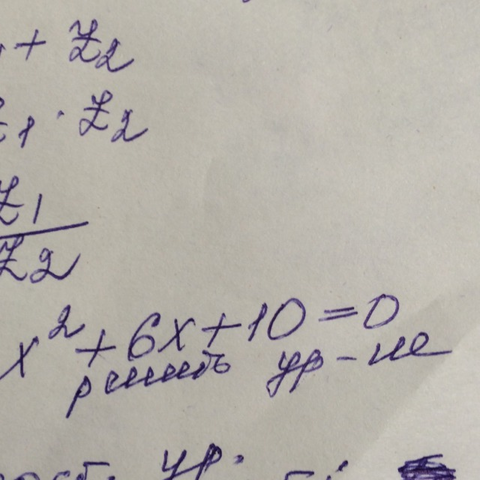 + Z₂
Z₁ · Z₂
Z₁
Z₂
x² + 6x + 10 = 0
решить ур-ие
ур.